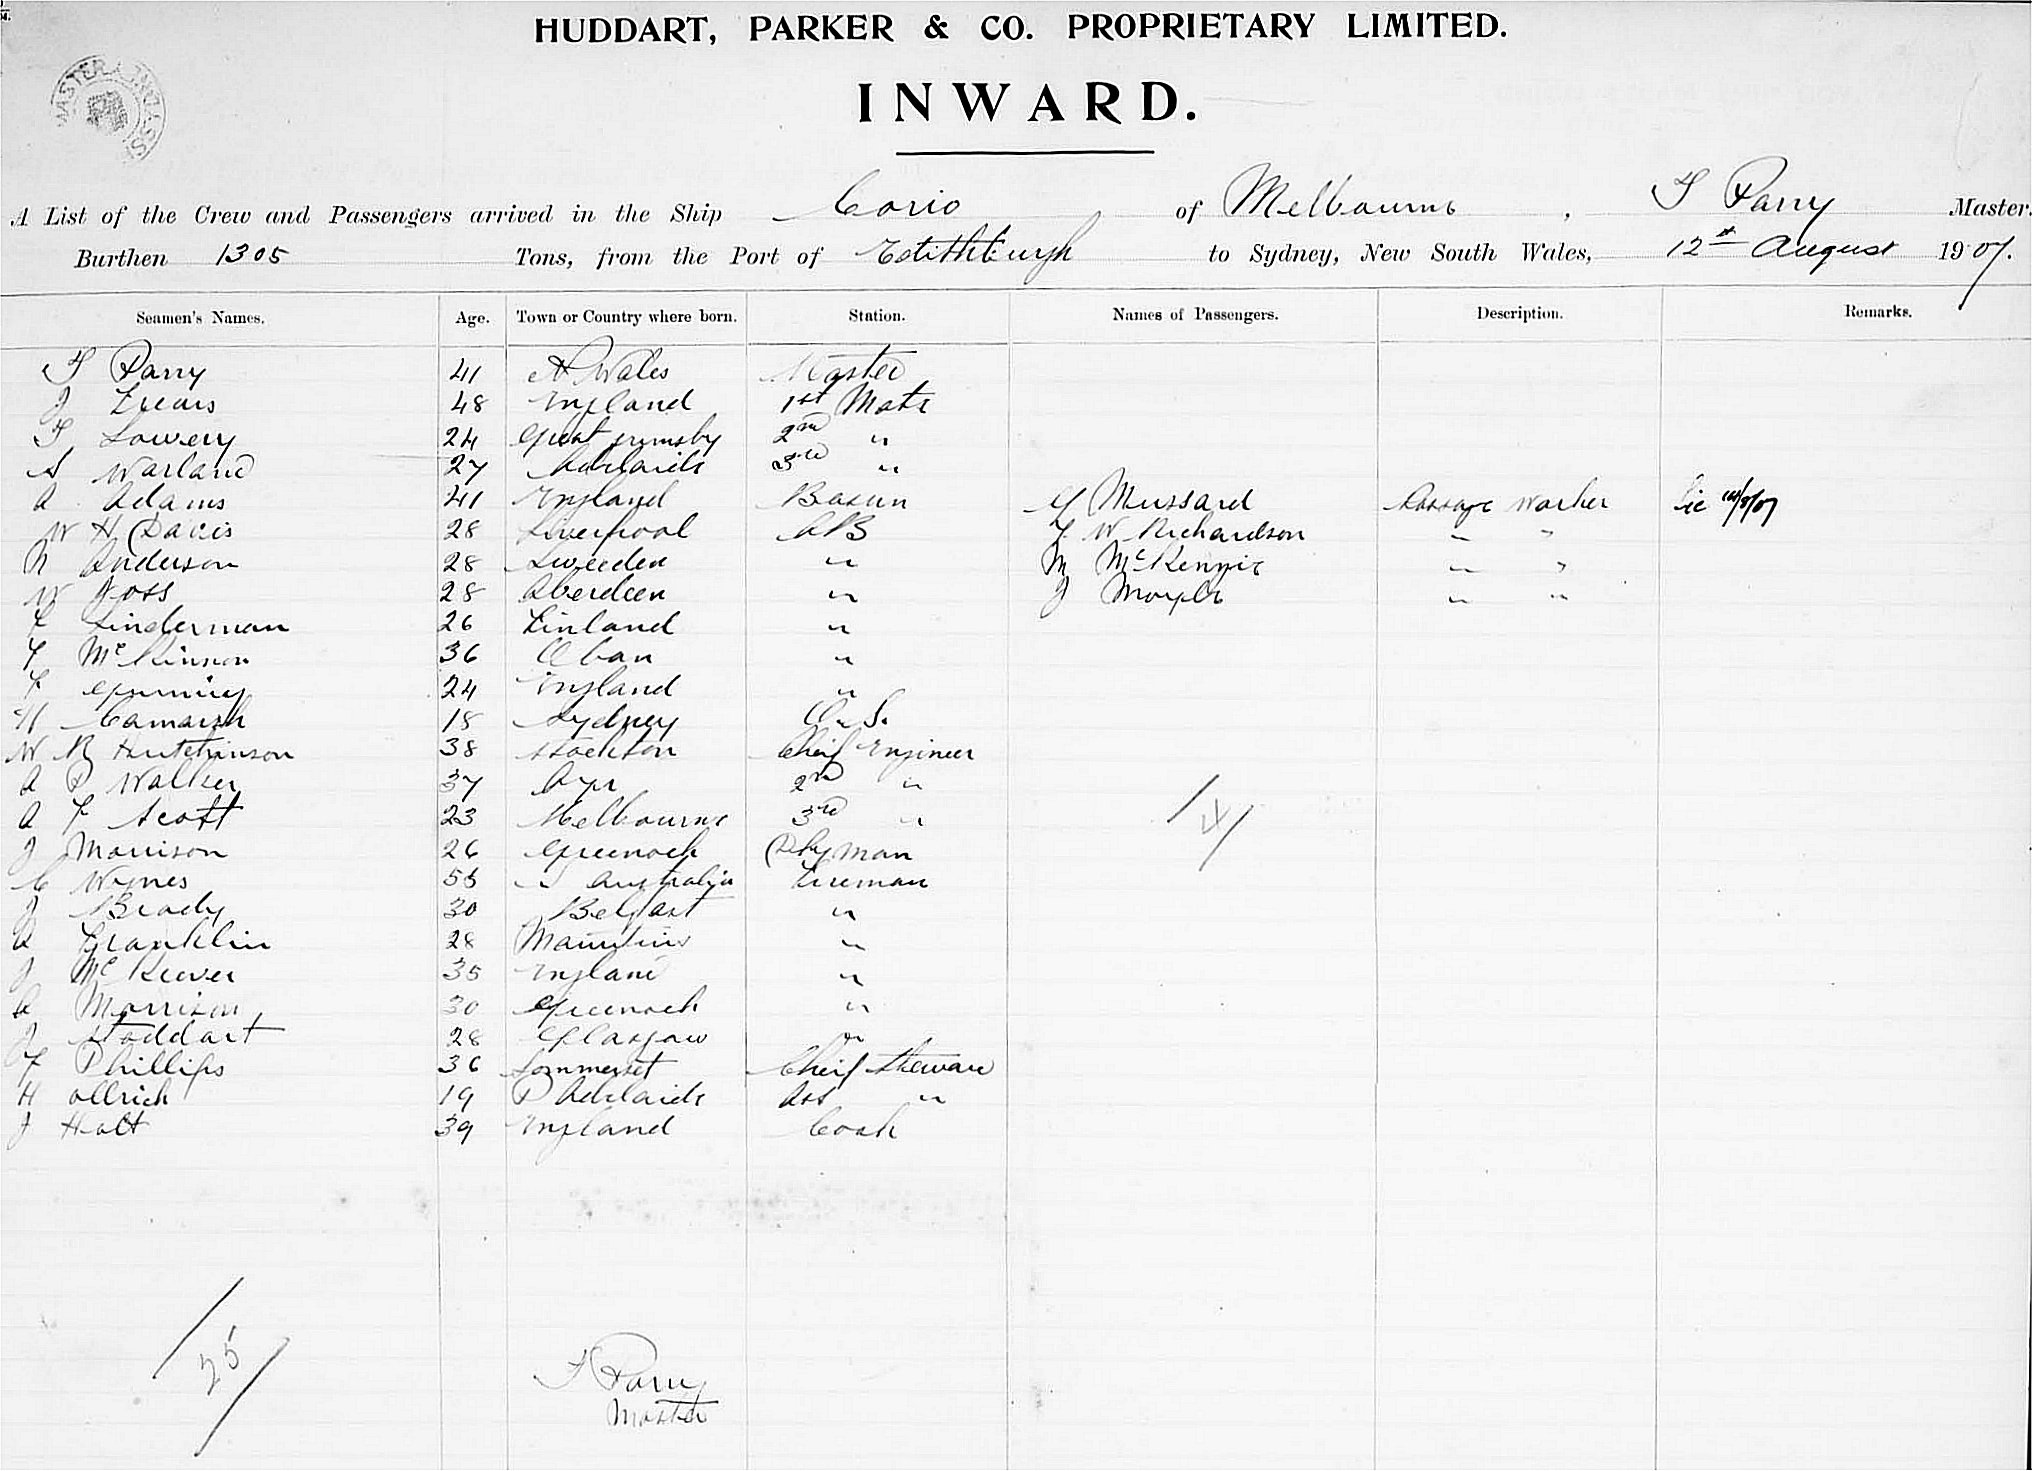 HUDDART, PARKER & CO. PROPRIETARY LIMITED.
INWARD.
A List of the Crew and Passengers arrived in the Ship Corio of Melbourne, T Parry Master.
Burthen 1305 Tons, from the Port of Edithburgh to Sydney, New South Wales, 12th August 1907.
Seamen's Names. Age. Town or Country where born. Station. Names of Passengers. Description. Remarks.
T Parry 41 N Wales Master
J 48 England 1st Mate
T Lowery 24 Great Grimsby 2nd "
S Warland 27 Adelaide 3rd "
A Adams 41 England Bosun G Mussard Passage Worker
W H Davis 28 Liverpool AB F. W Richardson " "
N Anderson 28 Sweeden " M McKenzie " "
W Ross 28 Aberdeen " J " "
F Linderman 26 Finland "
F McKinnon 36 Oban "
F 24 England "
H 18 Sydney O. S.
W R Hutchinson 38 Stockton Chief Engineer
A P Walker 37 Ayr 2nd "
A F Scott 23 Melbourne 3rd "
J Morrison 26 Greenock Dky man
C Wynes 55 S Australia Fireman
J Brady 30 Belfast "
A Franklin 28 Mauritius "
J McKeever 35 England "
A Morrison 30 Greenock "
J Stoddart 28 Glasgow "
F Phillips 36 Sommerset Chief Steward
H Ollrich 19 P Adelaide Ass "
J Holt 39 England Cook
/4/
/25/
T Parry
Master